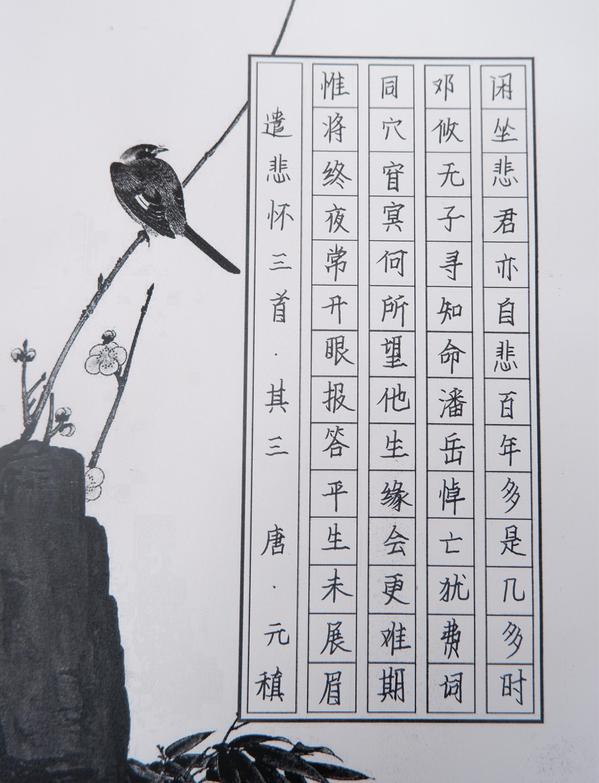 闲坐悲君亦自悲百年多是几多时
邓攸无子寻知命潘岳悼亡犹费词
同穴窅冥何所望他生缘会更难期
惟将终夜常开眼报答平生未展眉
遣悲怀三首·其三 唐·元稹